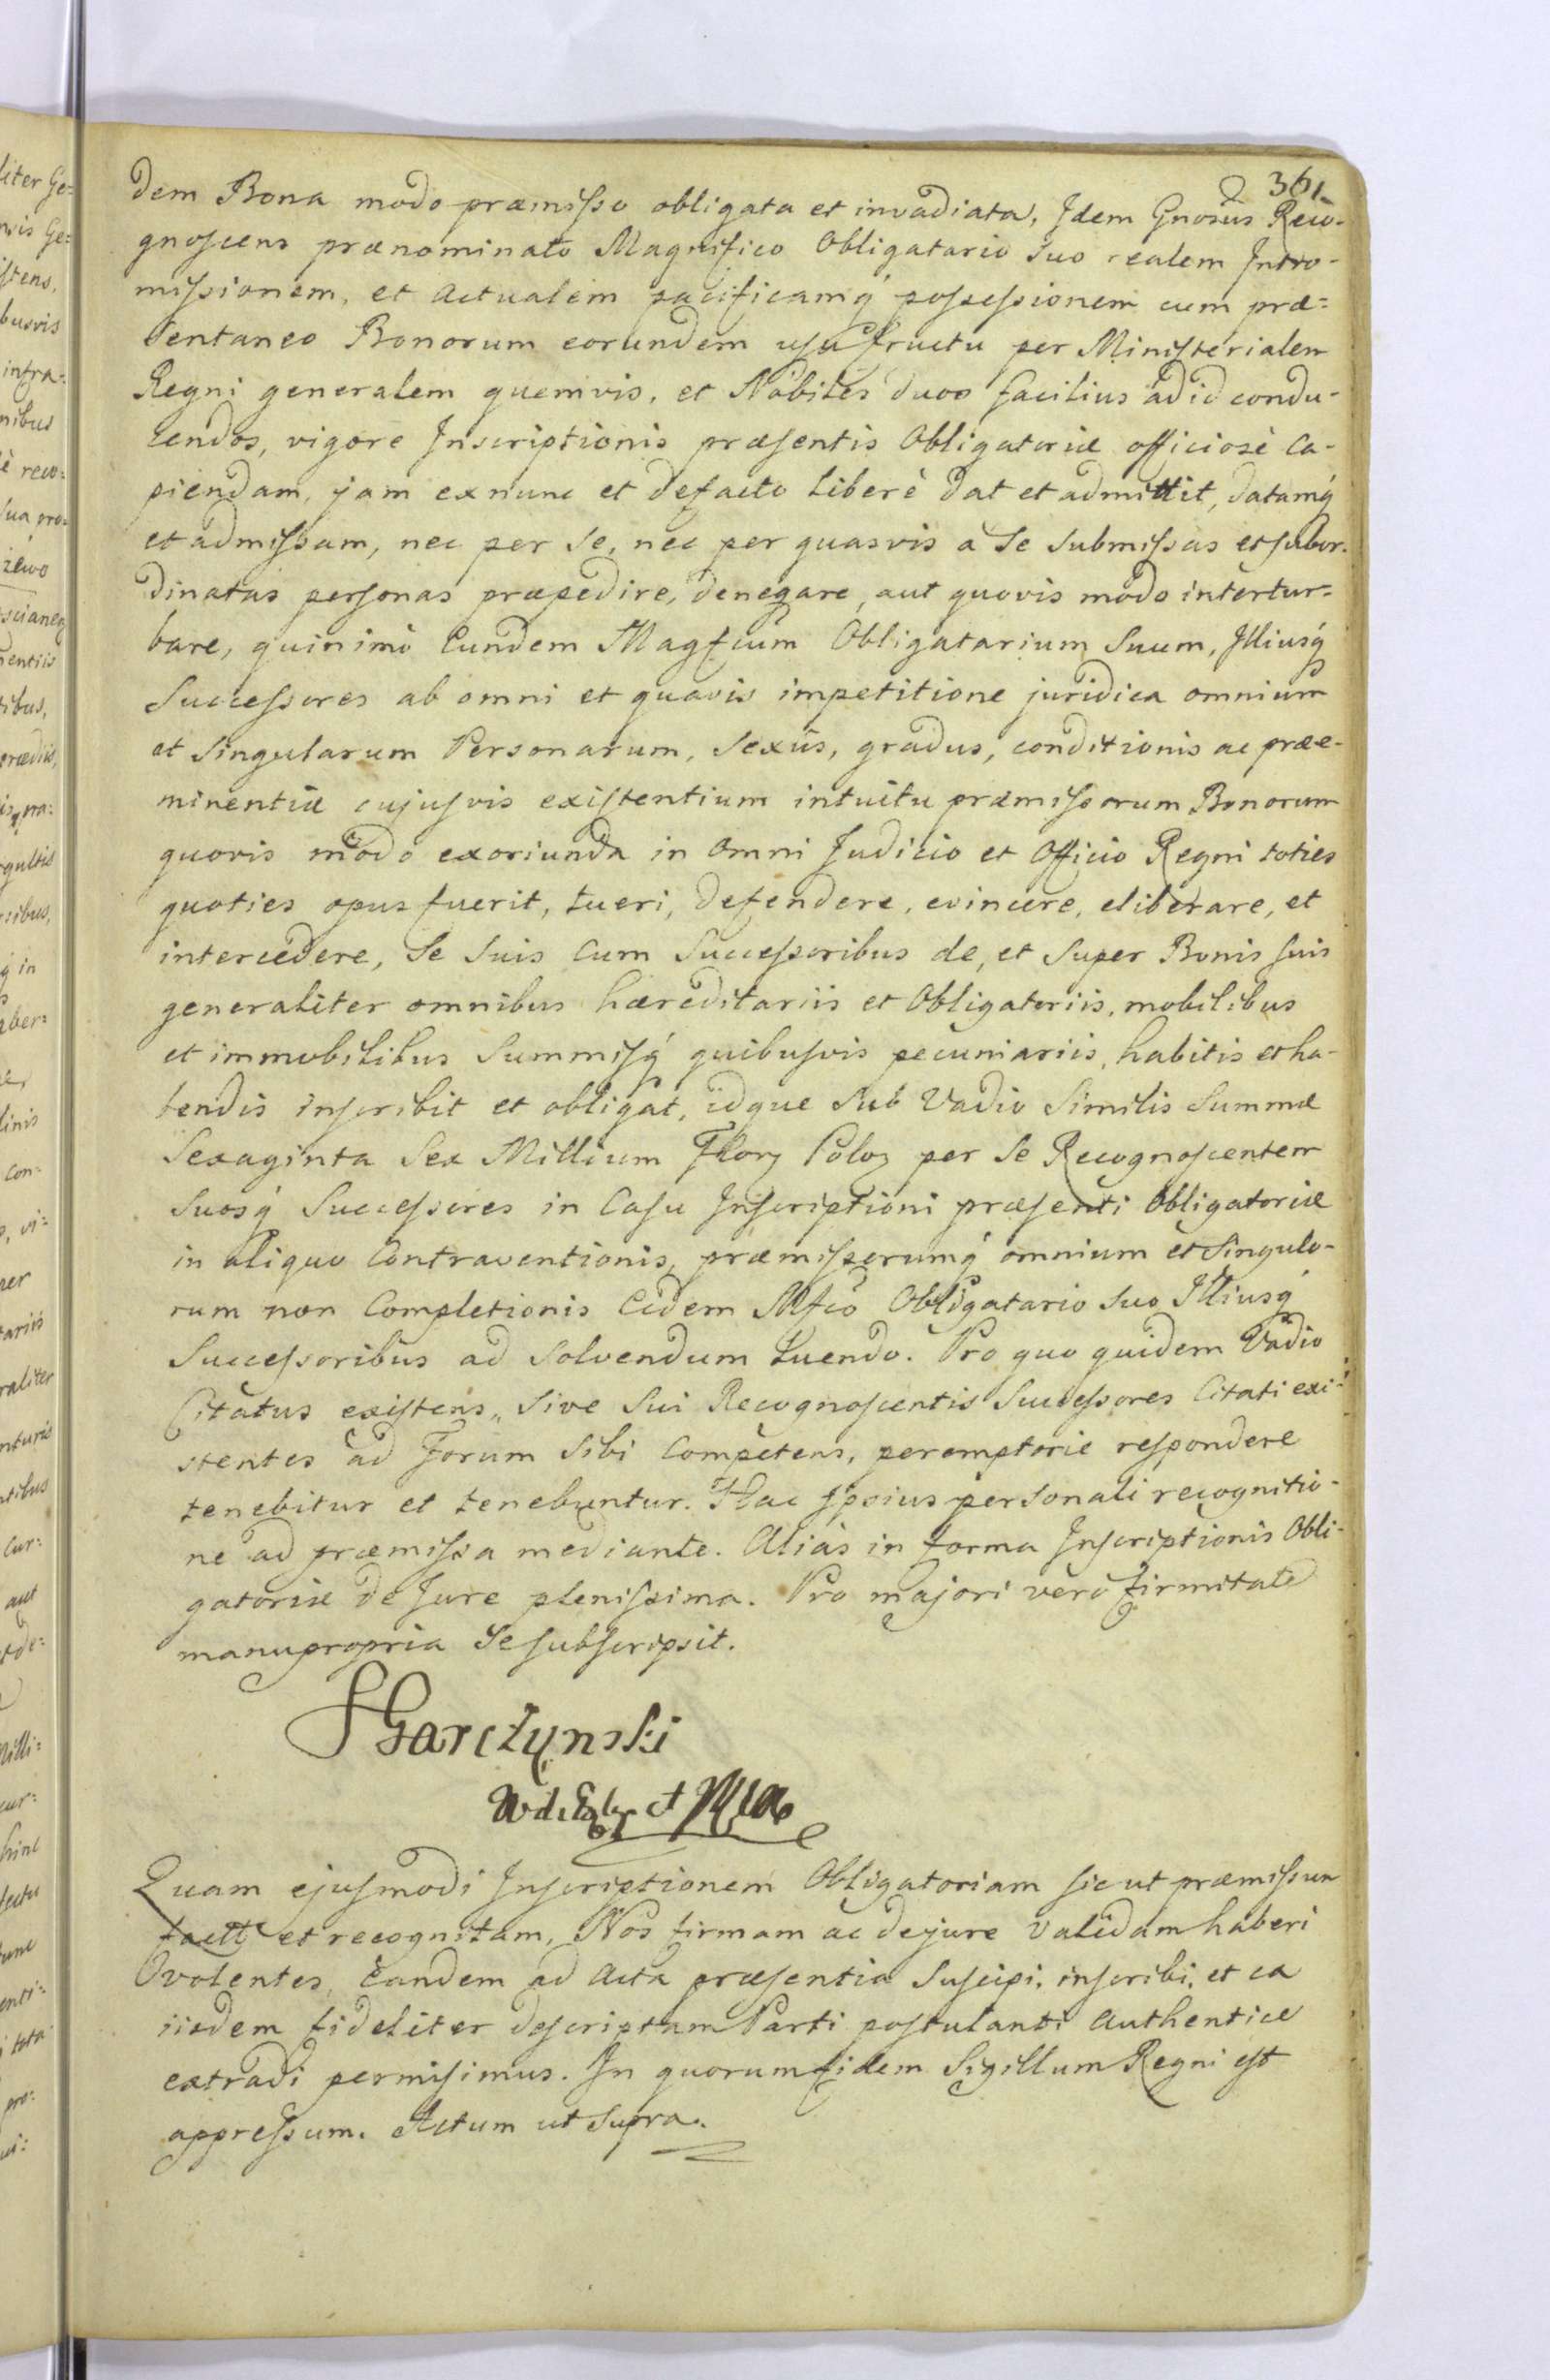 361
dem Bona modo præmisso obligata et invadiata, Idem Gnosus Reco-
gnoscens prænominato Magnifico Obligatario suo realem Intro-
missionem, et actualem pacificamq́ possessionem cum præ=
sentaneo Bonorum eorundem usufructu per Ministerialem
Regni generalem quemvis, et Nobiles duos facilius ad id condu-
cendos, vigore Inscriptionis præsentis Obligatoriæ officiosè ca-
piendam, jam exnunc et defacto liberè dat et admittit, datamq́
et admissam, nec per se, nec per quasvis a se submissas et subor-
dinatas personas præpedire, denegare, aut quovis modo intertur=
bare, quinimò Eundem Magfcum Obligatarium Suum, Illiusq́
Successores ab omni et quavis impetitione juridica omnium
et Singularum Personarum, Sexûs, gradus, conditionis ac præe-
minentiæ cujusvis existentium intuitu præmissorum Bonorum
quovis modo exoriunda in omni Judicio et Officio Regni toties
quoties opus fuerit, tueri, defendere, evincere, eliberare, et
intercedere, Se Suis cum Successoribus de, et Super Bonis suis
generaliter omnibus hæreditariis et Obligatoriis, mobilibus
et immobilibus Summisq́ quibusvis pecuniariis, habitis et ha-
bendis inscribit et obligat, idque Sub Vadio Similis Summæ
Sexaginta Sex Millium Flor Polo per Se Recognoscentem
Suosq́ Successores in Casu Inscriptioni præsenti Obligatoriæ
in aliquo Contraventionis, præmissorumq́ omnium et Singulo-
rum non Completionis Eidem Mfco Obligatario suo Illiusq́
Successoribus ad Solvendum luendo. Pro quo quidem Vadio
Citatus existens, Sive Sui Recognoscentis Successores Citati exi-
stentes ad Forum Sibi Competens, peremptorie respondere
tenebitur et tenebuntur. Hac Ipsius personali recognitio-
ne ad præmissa mediante. Aliàs in forma Inscriptionis Obli-
gatoriæ de Jure plenissima. Pro majori verò firmitate
manupropria Se subscripsit.
Garczynski
Quam ejusmodi Inscriptionem Obligatoriam sic ut præmissum
et recognitam, Nos firmam ac dejure validam haberi
volentes, Eandem ad Acta præsentia Suscipi, inscribi, et ex
iisdem fideliter descriptam Parti postulanti Authentice
extradi permisimus. In quorum fidem Sigillum Regni est
appressum. Actum ut Supra.